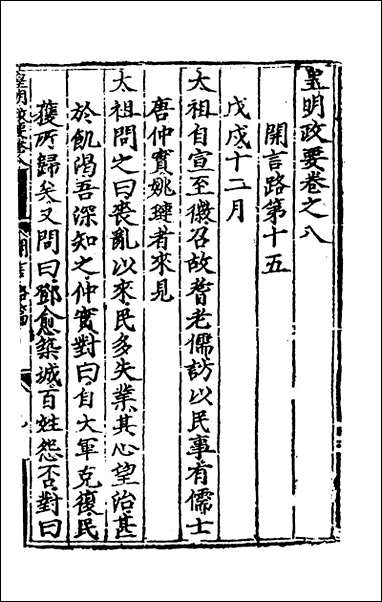 皇明政要卷之八
開言路第十五
戊戌十二月
太祖自宣至徽召故耆老儒訪以民事有儒士
唐仲實姚璉者來見
太祖問之曰喪亂以來民多失業其心望治甚
於飢渴吾深知之仲實對曰自大軍克復民
獲所歸矣又問曰鄧愈築城百姓怨否對曰
皇明政要卷八